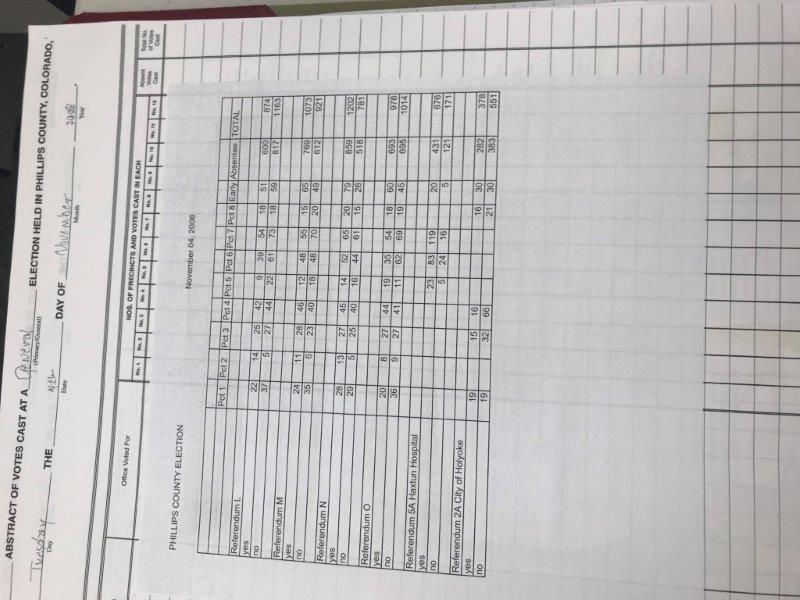 ABSTRACT OF VOTES CAST AT A General ELECTION HELD IN PHILLIPS COUNTY, COLORADO,
(Primary/General)
Tuesday THE 4th DAY OF November 2008
Day Date Month Year
Office Voted For NOS. OF PRECINCTS AND VOTES CAST IN EACH Absent Votes Cast Total No. of Votes Cast
No. 1 No. 2 No. 3 No. 4 No. 5 No. 6 No. 7 No. 8 No. 9 No. 10 No. 11 No. 12
PHILLIPS COUNTY ELECTION November 04, 2008
Pct 1 Pct 2 Pct 3 Pct 4 Pct 5 Pct 6 Pct 7 Pct 8 Early Absentee TOTAL
Referendum L
yes 22 14 25 42 9 39 54 18 51 600 874
no 37 5 27 44 22 61 73 18 59 817 1163
Referendum M
yes 24 11 28 46 12 48 55 15 65 769 1073
no 35 6 23 40 18 48 70 20 49 612 921
Referendum N
yes 28 13 27 45 14 52 65 20 79 859 1202
no 29 5 25 40 16 44 61 15 28 518 781
Referendum O
yes 20 8 27 44 19 35 54 18 60 693 978
no 36 9 27 41 11 62 69 19 45 695 1014
Referendum 5A Haxtun Hospital
yes 23 83 119 20 431 676
no 5 24 16 5 121 171
Referendum 2A City of Holyoke
yes 19 15 16 16 30 282 378
no 19 32 66 21 30 383 551